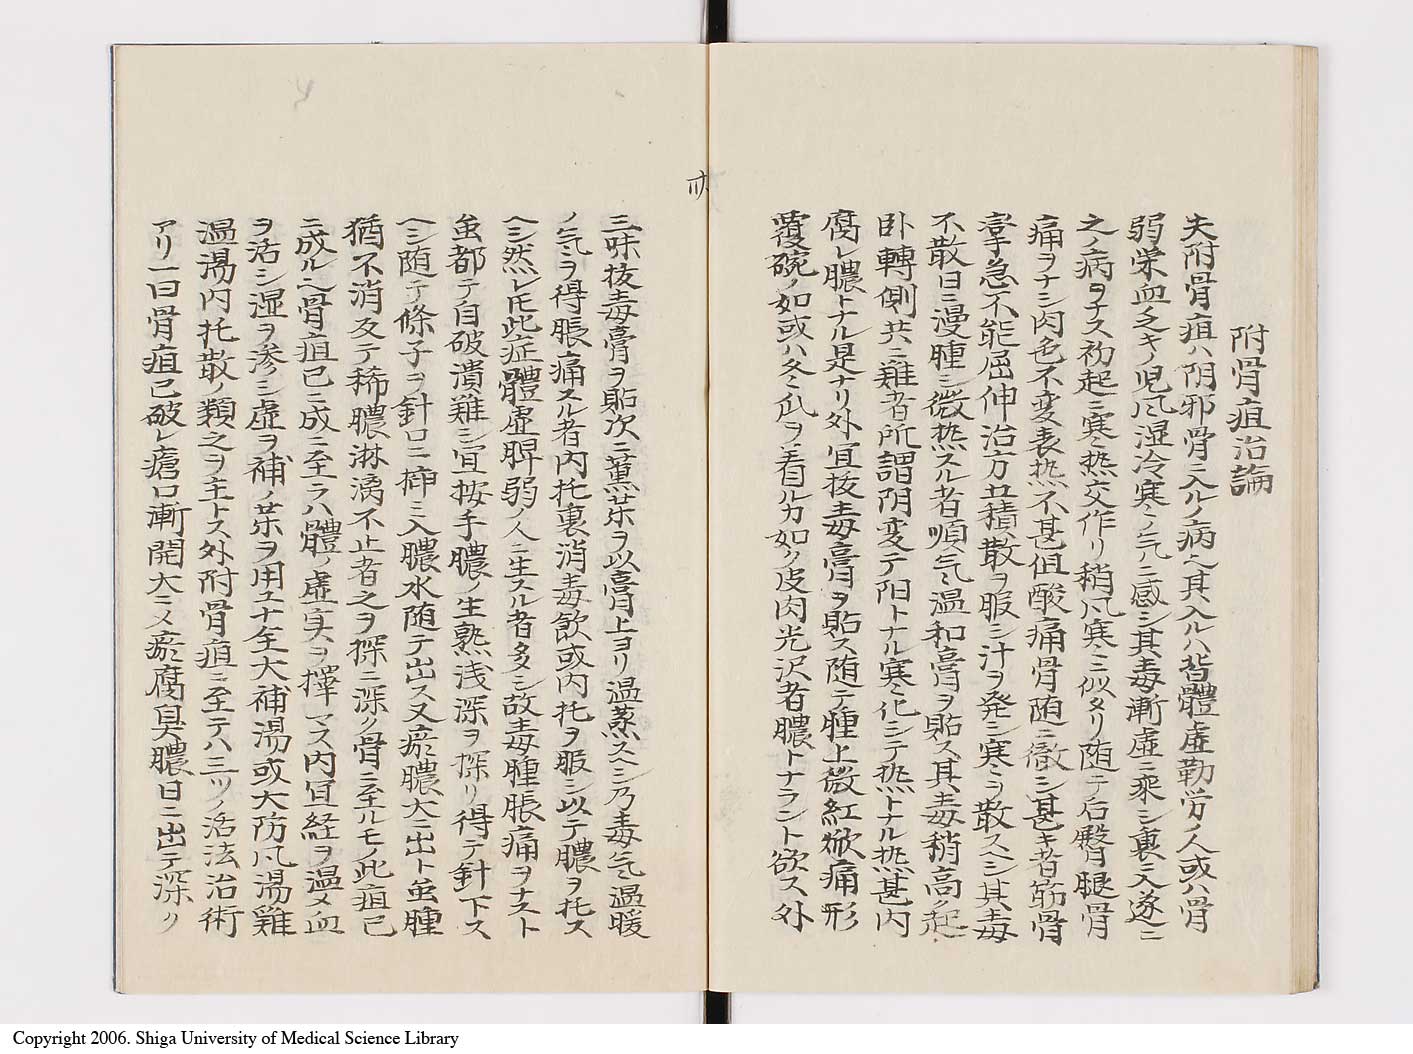 附骨疽治論
夫附骨疽ハ阴邪骨ニ入ルノ病ヘ其入ルハ皆體虚勒労ノ人或ハ骨
弱栄血乏キノ児凨湿冷寒ノ气ニ感シ其毒漸虚ニ乘シ裏ニ入遂ニ
之ノ病ヲナス初起ニ寒热交作リ稍凨寒ニ似タリ随テ后臀腿骨
痛ヲナシ肉色不変表热不甚但酸痛骨随ニ徹シ甚キ者筋骨
挛急不能屈伸治方五積散ヲ服シ汁ヲ発シ寒ヲ散スヘシ其毒
不散日ニ漫腫シ微热スル者順气温和膏ヲ貼ス其毒稍高ク起
卧轉側共ニ難者所謂阴変テ阳トナル寒化シテ热トナル热甚内
腐レ膿トナル是ナリ外宜抜毒膏ヲ貼ス随テ腫上微紅焮痛形
覆碗ノ如或ハ冬瓜ヲ看ルカ如ク皮肉光沢者膿トナラント欲ス外
三味抜毒膏ヲ貼次ニ薫薬ヲ以膏上ヨリ温蒸スヘシ乃毒气温暖
ノ气ヲ得脹痛スル者内托裏消毒飲或内托ヲ服シ以テ膿ヲ托ス
ヘシ然レ𪜈此症體虚脾弱ノ人ニ生スル者多シ故毒腫脹痛ヲナスト
虽都テ自破潰難シ宜按手膿ノ生熟浅深ヲ探リ得テ針下ス
ヘシ随テ條子ヲ針口ニ揷ミ入膿水随テ出ス又瘀膿大ニ出ト虽腫
猶不消反テ稀膿淋漓不止者之ヲ探ニ深ク骨ニ至ルモノ此疽已
ニ成ルヘ骨疽已ニ成ニ至ラハ體ノ虚実ヲ擇マス内宜経ヲ温メ血
ヲ活シ湿ヲ渗シ虚ヲ補ノ薬ヲ用ユ十全大補湯或大防凨湯雞
温湯内托散ノ類之ヲ主トス外附骨疽ニ至テハ三ツノ活法治術
アリ一曰骨疽已破レ瘡口漸開大ニメ瘀腐臭膿日ニ出テ深ク